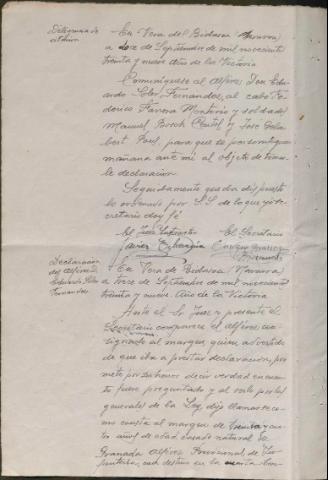 Diligencia de
citacion
En Vera del Bidasoa (Navarra)
a doce de Septiembre de mil novecientos
treinta y nueve Año de la Victoria
Comuniquese al Alferez Jose Edu
ardo Fernandez, al cabo Fe
derico y soldados
Manuel Bosch y Jose
bert para que se personen
mañana ante mi al objeto de
le declaracion.
Seguidamente queda dispuesto
lo ordenado por S.S. de lo que yo Se
cretario doy fé
El Juez Instructor El Secretario
Javier
Declaracion
del Alferez D.
Eduardo
Fernandez
En Vera de Bidasoa Navarra
a trece de Septiembre de mil novecientos
treinta y nueve. Año de la Victoria
Ante el Sr Juez y presente el
Secretario comparece el alferez con
signado al margen, quien advertido
de que iba a prestar declaracion, pro
mete por su honor decir verdad en cuanto
fuere preguntado y al serlo por las
generales de la Ley, dijo llamarse co
mo consta al margen de treinta y cua
tro años de edad casado natural de
Granada Alferez Provisional, de
con destino en la cuarta